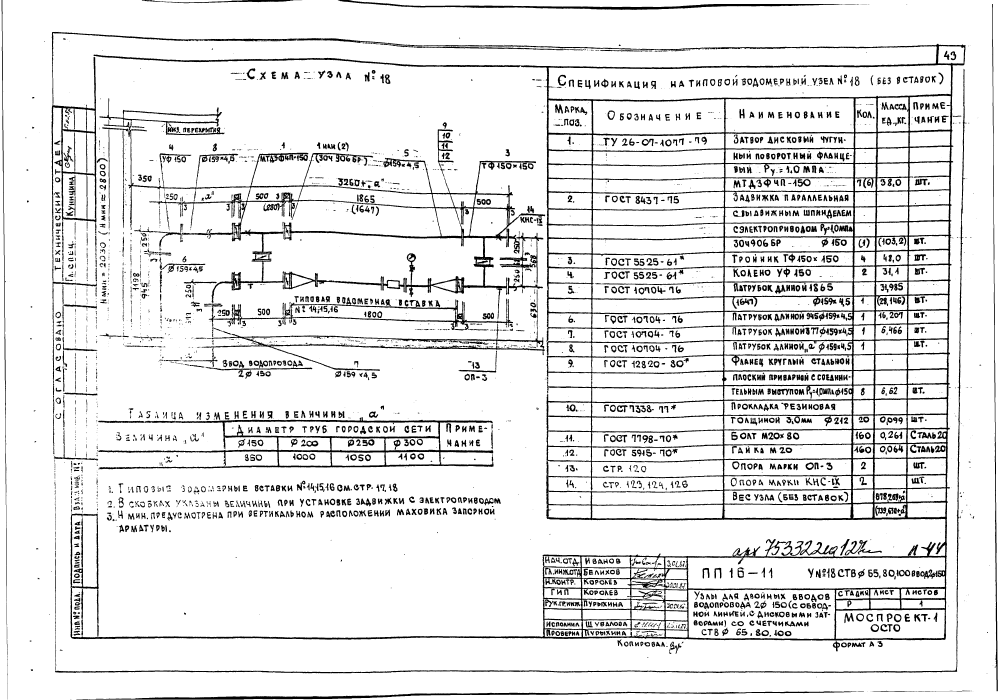 43
Схема узла № 18
Низ перекрытия
4 8 1 1 или (2) 5 9 10 11 12 3
УФ 150 Ø159×4,5 МТДЗФЧП-150 (30ч 906 БР) Ø159×4,5 ТФ150×150
350
3260+„а"
250 „а" 500 (250) 1865 (1647) 500
14
КНС-IX
H мин = 2030 (H мин = 2800)
1198
945
250
6
Ø159×4,5
250
560
630
Типовая водомерная вставка
№ 14;15,16
250 500 1800 500
Ввод водопровода
2 Ø 150
7
Ø159×4,5
13
ОП-3
Таблица изменения величины „а"
Величина „а"
Диаметр труб городской сети
Приме-
чание
Ø150 Ø200 Ø250 Ø300
„а" 850 1000 1050 1100
1. Типовые водомерные вставки №14;15,16 см. стр. 17,18
2. В скобках указаны величины при установке задвижки с электроприводом
3. H мин. предусмотрена при вертикальном расположении маховика запорной
арматуры.
Спецификация на типовой водомерный узел № 18 (без вставок)
Марка, поз. Обозначение Наименование Кол. Масса ед., кг. Приме-чание
1. ТУ 26-07-1077-79 Затвор дисковый чугун-
ный поворотный фланце-
вый Ру=1,0 МПа
МТДЗФЧП-150 7(6) 38,0 шт.
2. ГОСТ 8437-75 Задвижка параллельная
с выдвижным шпинделем
с электроприводом Ру=1,0 МПа
30ч 906 БР Ø150 (1) (103,2) шт.
3. ГОСТ 5525-61* Тройник ТФ 150×150 4 48,0 шт.
4. ГОСТ 5525-61* Колено УФ 150 2 31,1 шт.
5. ГОСТ 10704-76 Патрубок длиной 1865 31,985
(1647) Ø159×4,5 1 (28,146) шт.
6. ГОСТ 10704-76 Патрубок длиной 945 Ø159×4,5 1 16,207 шт.
7. ГОСТ 10704-76 Патрубок длиной 377 Ø159×4,5 1 6,466 шт.
8. ГОСТ 10704-76 Патрубок длиной „а" Ø159×4,5 1 шт.
9. ГОСТ 12820-80* Фланец круглый стальной
плоский приварной с соедини-
тельным выступом Ру=1,0 МПа Ø150 8 6,62 шт.
10. ГОСТ 7338-77* Прокладка резиновая
толщиной 3,0мм Ø212 20 0,099 шт.
11. ГОСТ 7798-70* Болт М20×80 160 0,261 Сталь20
12. ГОСТ 5915-70* Гайка М20 160 0,064 Сталь20
13. Стр. 120 Опора марки ОП-3 2 шт.
14. Стр. 123, 124, 126 Опора марки КНС-IX 2 шт.
Вес узла (без вставок)
арх 753322
л-44
Нач.отд. Иванов
Гл.инж.отд. Белихов
Н.контр. Королев
ГИП Королев
Рук.гр.инж. Пурыхина
Исполнил Шувалова
Проверил Пурыхина
ПП 16-11 У№18 СТВ Ø 65, 80, 100 ввод 2Ø150
Узлы для двойных вводов
водопровода 2Ø 150 (с обвод-
ной линией, с дисковыми зат-
ворами) со счетчиками
СТВ Ø 65, 80, 100
Стадия Лист Листов
Р 1
Моспроект-1
ОСТО
Копировал
Формат А3
Согласовано
Технический отдел
Гл. спец. Куничина
Взам. инв. №
Подпись и дата
Инв № подл.